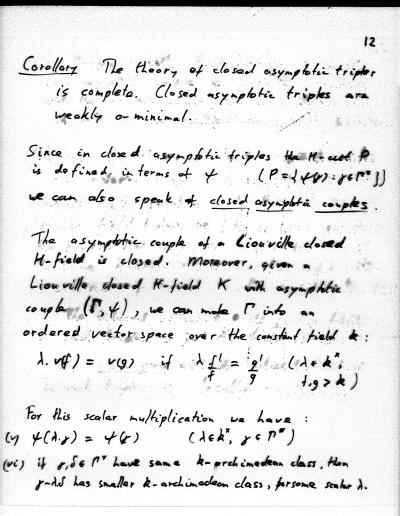 12
Corollary The theory of closed asymptotic triples
is complete. Closed asymptotic triples are
weakly o-minimal.
Since in closed asymptotic triples the H-cut P
is defined in terms of ψ (P = {ψ(γ) : γ ∈ Γ*})
we can also speak of closed asymptotic couples.
The asymptotic couple of a Liouville closed
H-field is closed. Moreover, given a
Liouville closed H-field K with asymptotic
couple (Γ, ψ), we can make Γ into an
ordered vector space over the constant field k:
λ.v(f) = v(g) if λ f'/f = g'/g (λ ∈ k*,
f,g > k)
For this scalar multiplication we have :
(v) ψ(λ.γ) = ψ(γ) (λ ∈ k*, γ ∈ Γ*)
(vi) if γ,δ ∈ Γ* have same k-archimedean class, then
γ-λδ has smaller k-archimedean class, for some scalar λ.